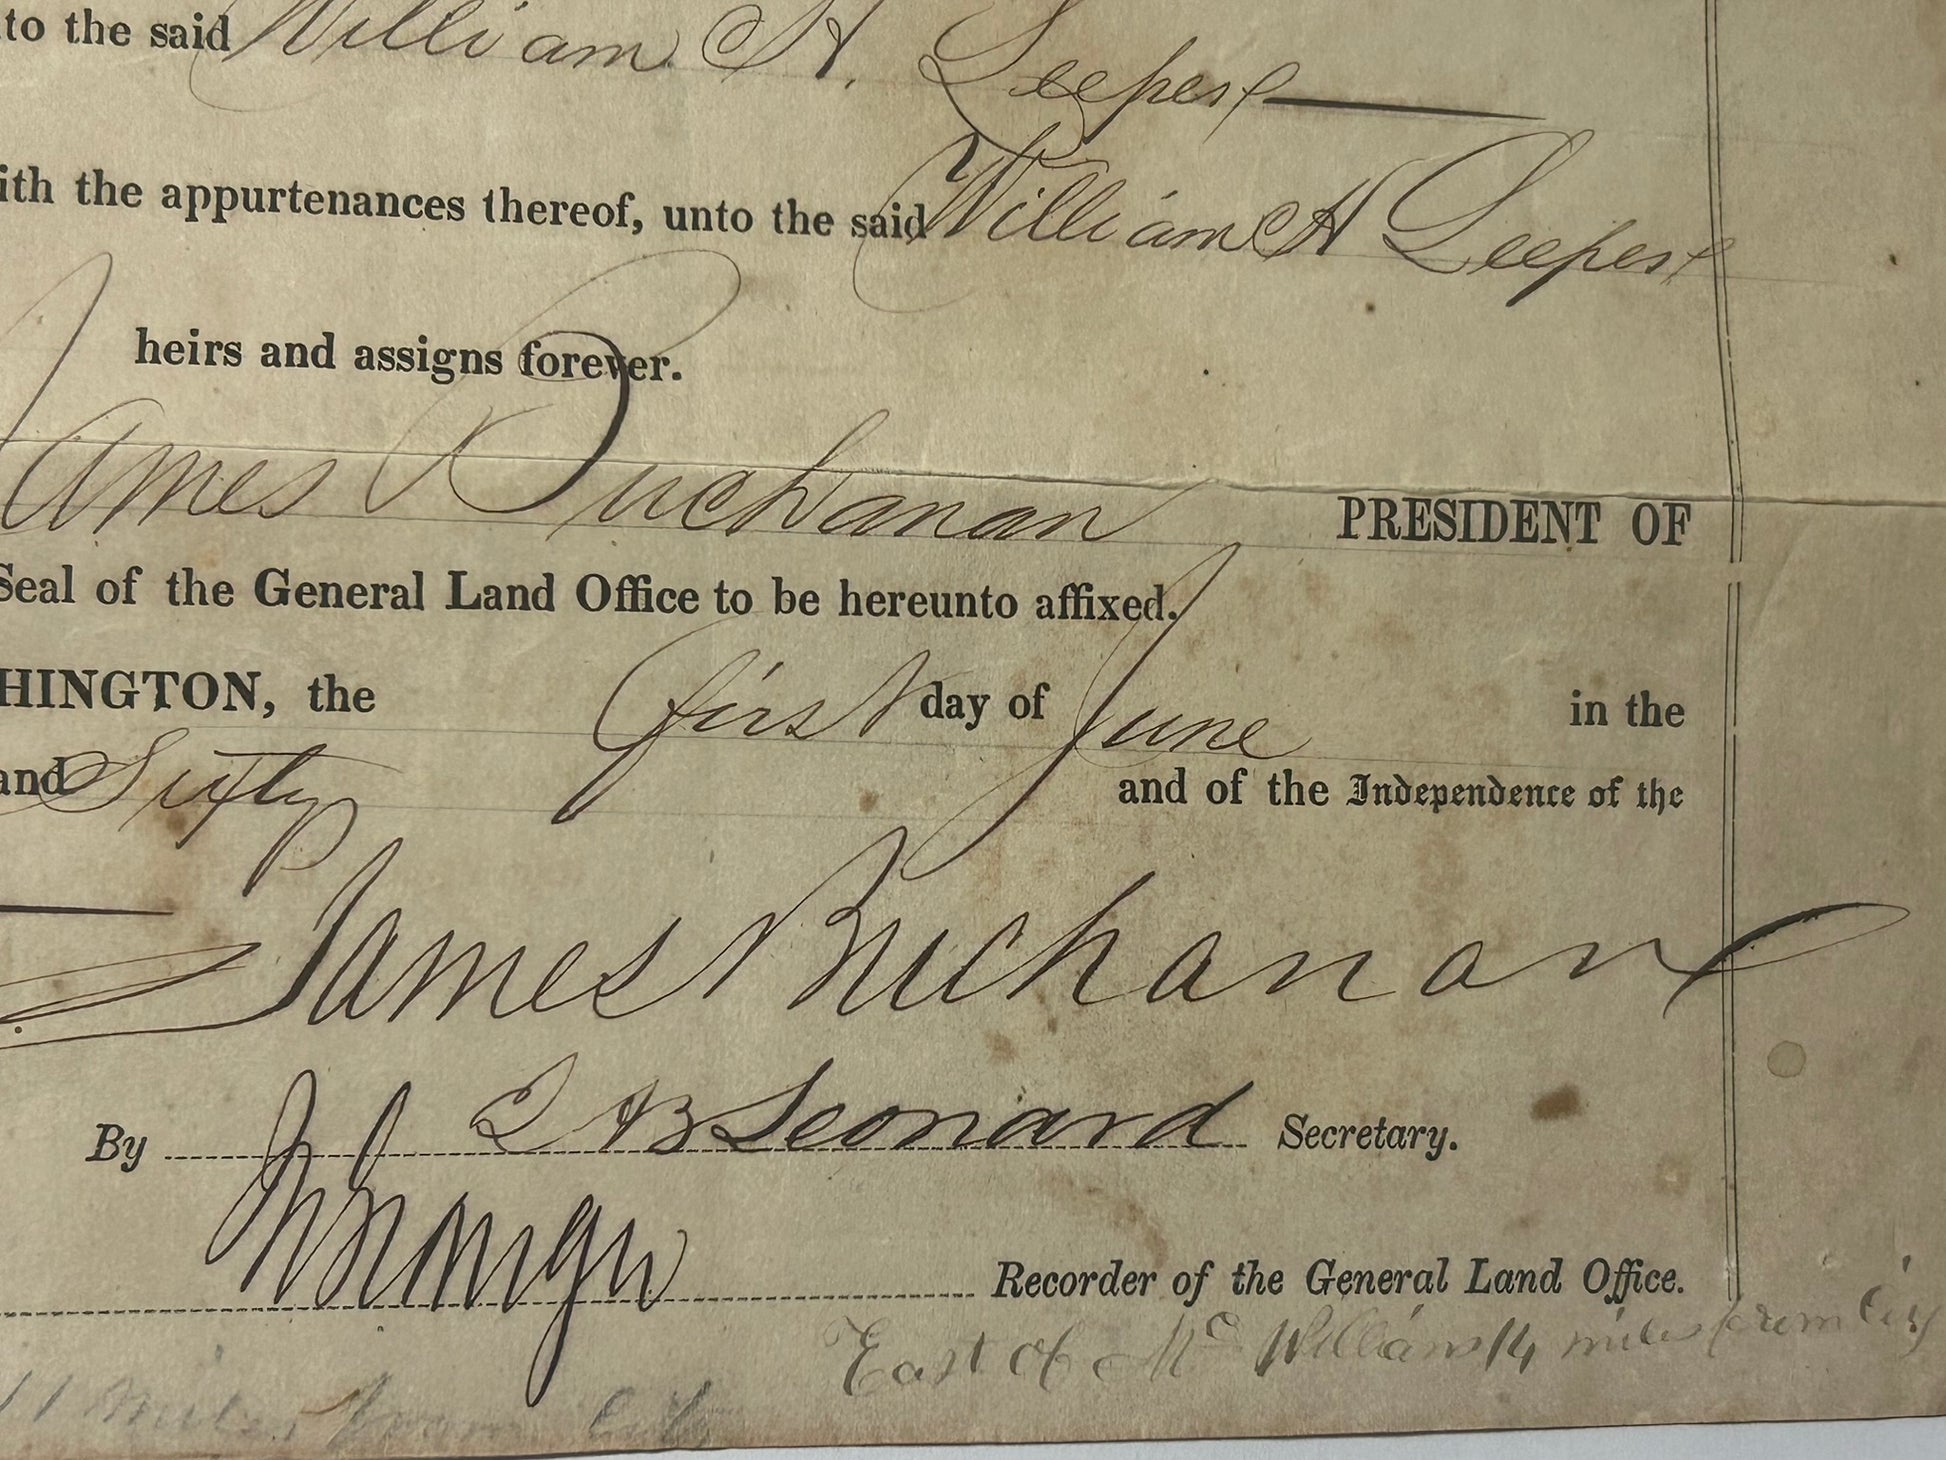 to the said William H. Leeper
ith the appurtenances thereof, unto the said William H Leeper
heirs and assigns forever.
James Buchanan PRESIDENT OF
Seal of the General Land Office to be hereunto affixed.
HINGTON, the first day of June in the
and Sixty and of the Independence of the
James Buchanan
By J B Leonard Secretary.
Recorder of the General Land Office.
East of Mc Williams 14 miles from City
11 miles from City